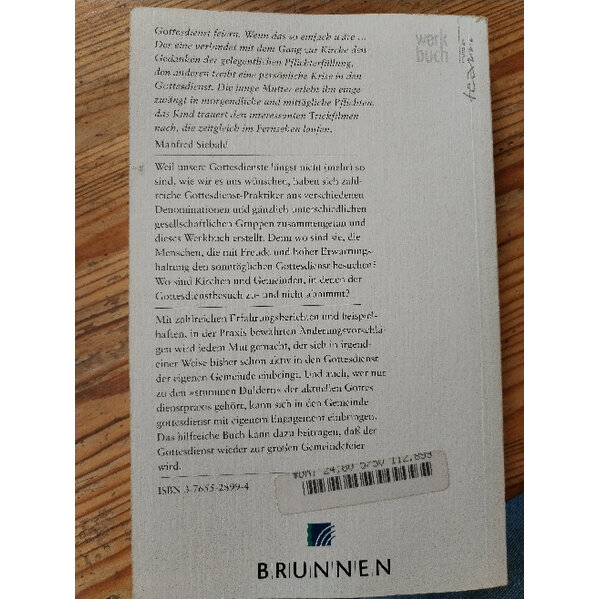 Gottesdienst feiern. Wenn das so einfach wäre ...
Der eine verbindet mit dem Gang zur Kirche den
Gedanken der gelegentlichen Pflichterfüllung,
den anderen treibt eine persönliche Krise in den
Gottesdienst. Die junge Mutter erlebt ihn einge-
zwängt in morgendliche und mittägliche Pflichten,
das Kind trauert den interessanten Trickfilmen
nach, die zeitgleich im Fernsehen laufen.
Manfred Siebald
werk
buch
team
Weil unsere Gottesdienste längst nicht (mehr) so
sind, wie wir es uns wünschen, haben sich zahl-
reiche Gottesdienst-Praktiker aus verschiedenen
Denominationen und gänzlich unterschiedlichen
gesellschaftlichen Gruppen zusammengetan und
dieses Werkbuch erstellt. Denn wo sind sie, die
Menschen, die mit Freude und hoher Erwartungs-
haltung den sonntäglichen Gottesdienst besuchen?
Wo sind Kirchen und Gemeinden, in denen der
Gottesdienstbesuch zu- und nicht abnimmt?
Mit zahlreichen Erfahrungsberichten und beispiel-
haften, in der Praxis bewährten Änderungsvorschlä-
gen wird jedem Mut gemacht, der sich in irgend-
einer Weise bisher schon aktiv in den Gottesdienst
der eigenen Gemeinde einbringt. Und auch, wer nur
zu den »stummen Duldern« der aktuellen Gottes
dienstpraxis gehört, kann sich in den Gemeinde
gottesdienst mit eigenem Engagement einbringen.
Das hilfreiche Buch kann dazu beitragen, daß der
Gottesdienst wieder zur großen Gemeindefeier
wird.
24,80 5/50 112.899
ISBN 3-7655-2899-4
BRUNNEN